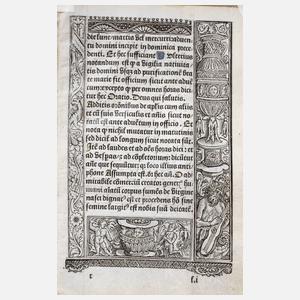 die lune: martis vel mercurii: adven-
tu domini incipit in dominica prece-
denti. Et hec sufficiant. Ulterius
notandum est q̃ a vigilia nativita-
tis domini usq; ad purificationē bea-
te marie fit officium sicut ante advē-
tum: excepto q̃ per omnes horas dici-
tur hec Oratio. Deus qui salutis.
Additis orōnibus de aplīs cum
suis Versiculis et añis sicut no-
est ante adventum in officio. Et
nota q̃ nichil mutatur in matutinis
sed dicit̃ ad longum sicut notatū fuit.
Itē ad laudes et ad oēs horas dici: et
ad vesperas: ad cōpletorium: dicunt̃
añe que sequunt̃
phone Assumpta est. et hec añ. O ad-
mirabile cōmerciū creator gener: hu-
mani aīatū corpus sumēs de Virgine
nasci dignat: est et procedens hō sine
semine largit: est nobis suā deitatē.